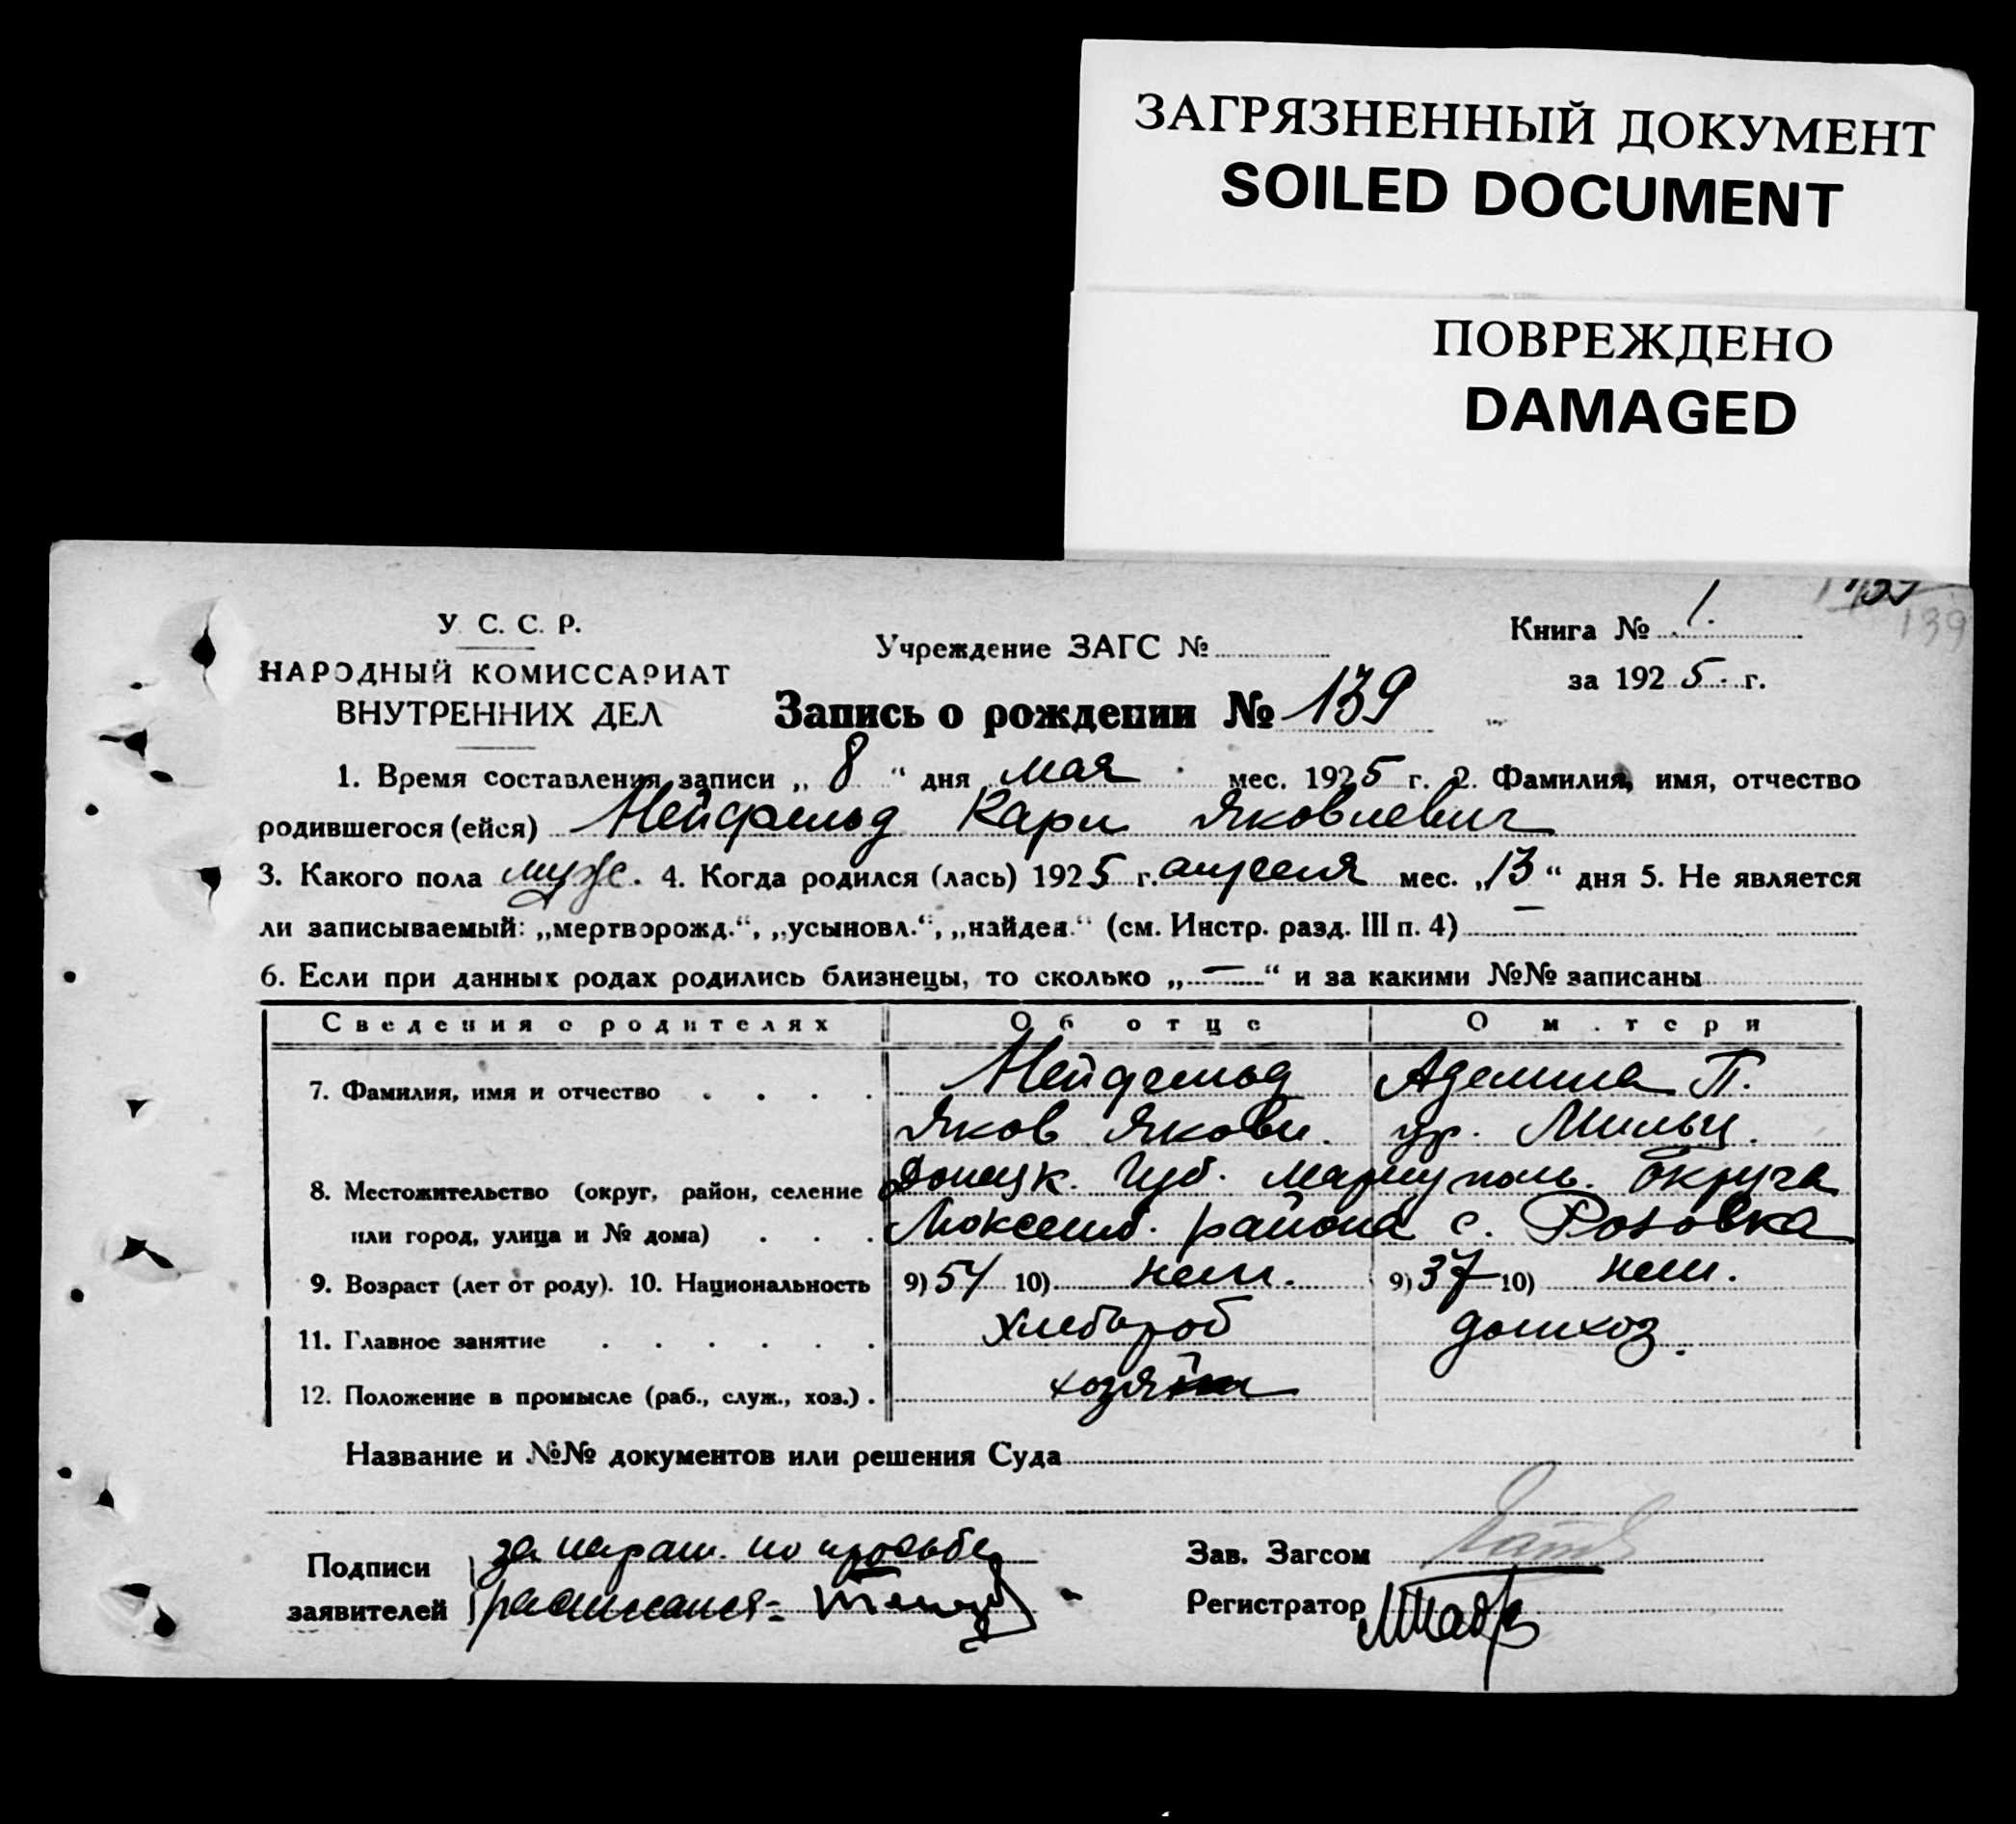 ЗАГРЯЗНЕННЫЙ ДОКУМЕНТ
SOILED DOCUMENT
ПОВРЕЖДЕНО
DAMAGED
139
У. С. С. Р.
НАРОДНЫЙ КОМИССАРИАТ
ВНУТРЕННИХ ДЕЛ
Учреждение ЗАГС №
Книга № 1.
за 1925. г.
Запись о рождении № 139
1. Время составления записи „ 8 “ дня мая мес. 1925 г. 2. Фамилия, имя, отчество
родившегося (ейся) Нейфельд Карл Яковлевич
3. Какого пола муж. 4. Когда родился (лась) 1925 г. апреля мес. „13“ дня 5. Не является
ли записываемый: „мертворожд.“, „усыновл.“, „найден.“ (см. Инстр. разд. III п. 4) —
6. Если при данных родах родились близнецы, то сколько „—“ и за какими №№ записаны
Сведения о родителях Об отце О матери
7. Фамилия, имя и отчество . . . . Нейфельд Аделина П.
Яков Яковл. ур. Мильц.
8. Местожительство (округ, район, селение Донецк. Губ. Мариуполь. Округа
или город, улица и № дома) . . . Люксемб. района с. Розовка
9. Возраст (лет от роду). 10. Национальность 9) 54 10) нем. 9) 37 10) нем.
11. Главное занятие . . . . . . хлебороб домхоз.
12. Положение в промысле (раб., служ., хоз.) . хозяин
Название и №№ документов или решения Суда
Подписи за неграм. по просьбе
заявителей расписался:
Зав. Загсом
Регистратор